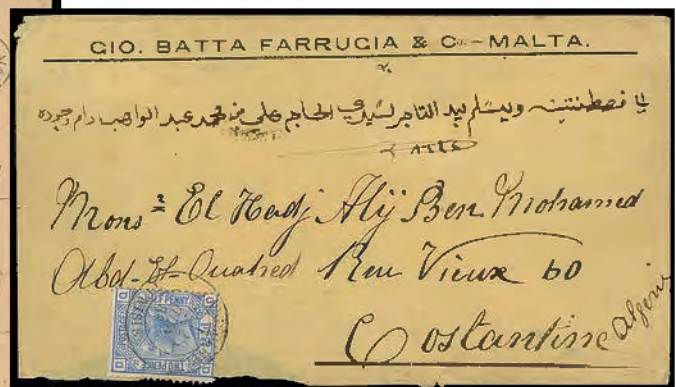 GIO. BATTA FARRUGIA & Co. - MALTA.
الى قصطنتينه ويتسلم بيد التاجر لسيدي الحاج علي بن محمد عبد الواهب دام وجوده
٨٦٤٤
Monsr El Hadj Alÿ Ben Mohamed
Abd-El-Ouahed Rue Vieux 60
Costantine Algerie
POSTAGE
TWO PENCE
PENNY